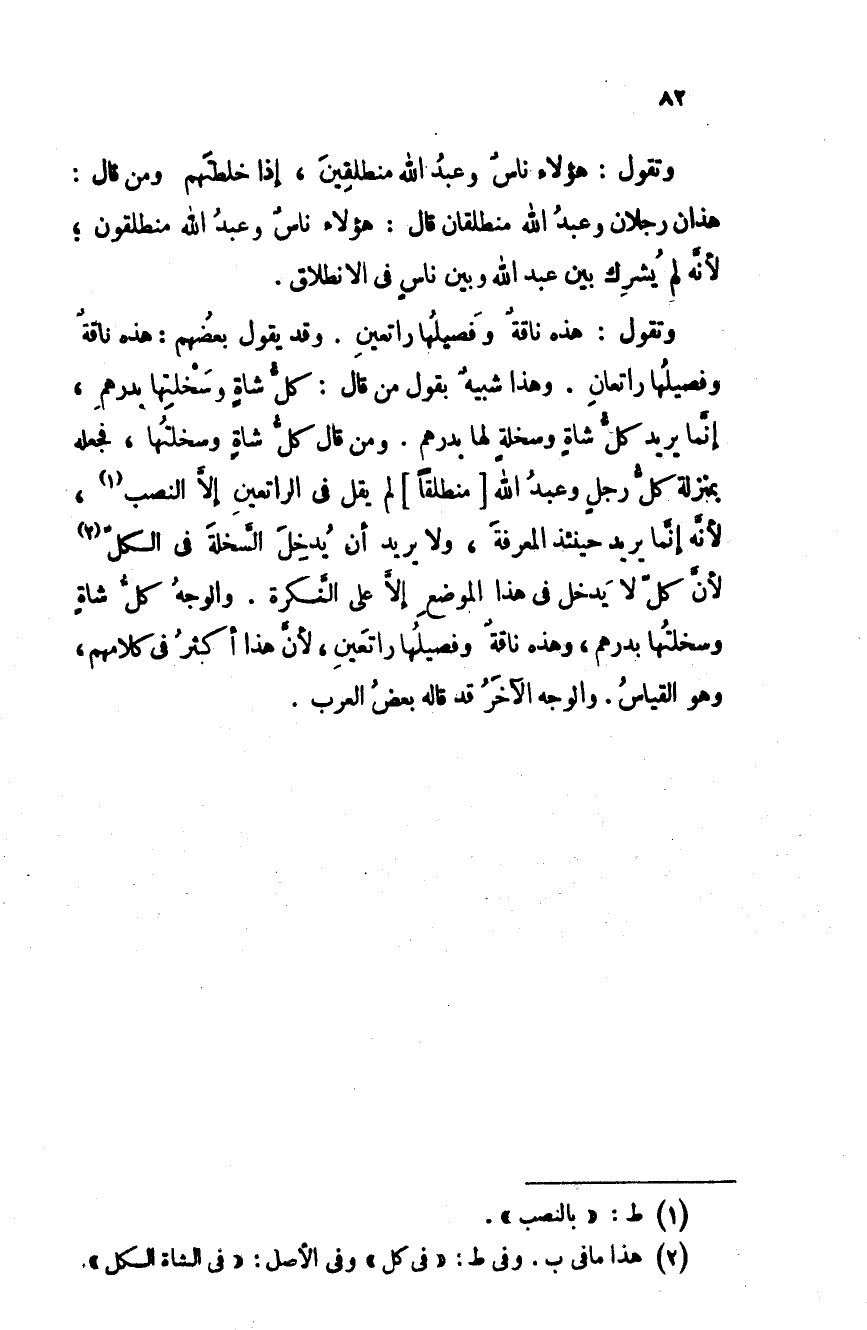 ٨٢
وتقول : هؤلاء ناسٌ وعبدُ الله منطلقِينَ ، إذا خلطتَهم ومن قال :
هذان رجلان وعبدُ الله منطلقان قال : هؤلاء ناسٌ وعبدُ الله منطلقون ؛
لأنَّه لم يُشرِك بين عبد الله وبين ناسٍ فى الانطلاق .
وتقول : هذه ناقةٌ وفَصيلُها راتعينِ . وقد يقول بعضُهم : هذه ناقةٌ
وفصيلُها راتعانِ . وهذا شبيهٌ بقول من قال : كلُّ شاةٍ وسَخْلتِها بدرهمٍ ،
إنَّما يريد كلُّ شاةٍ وسخلةٍ لها بدرهم . ومن قال كلُّ شاةٍ وسخلتُها ، فجعله
بمنزلة كلُّ رجلٍ وعبدُ الله [ منطلقاً ] لم يقل فى الراتعينِ إلاَّ النصب(١) ،
لأنَّه إنَّما يريد حينئذ المعرفةَ ، ولا يريد أن يُدخِلَ السَّخلةَ فى الكلّ(٢)
لأنَّ كلّ لا يَدخل فى هذا الموضعِ إلاَّ على النَّكرة . والوجهُ كلُّ شاةٍ
وسخلتُها بدرهم ، وهذه ناقةٌ وفصيلُها راتعَينِ ، لأنَّ هذا أكثرُ فى كلامهم ،
وهو القياسُ . والوجه الآخَرُ قد قاله بعضُ العرب .
(١) ط : « بالنصب » .
(٢) هذا مافى ب . وفى ط : « فى كل » وفى الأصل : « فى الشاة الكل » .